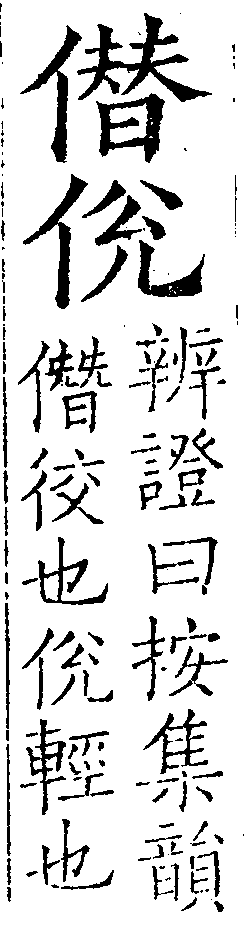 僣侻
辨證曰按集韻
僭也侻輕也